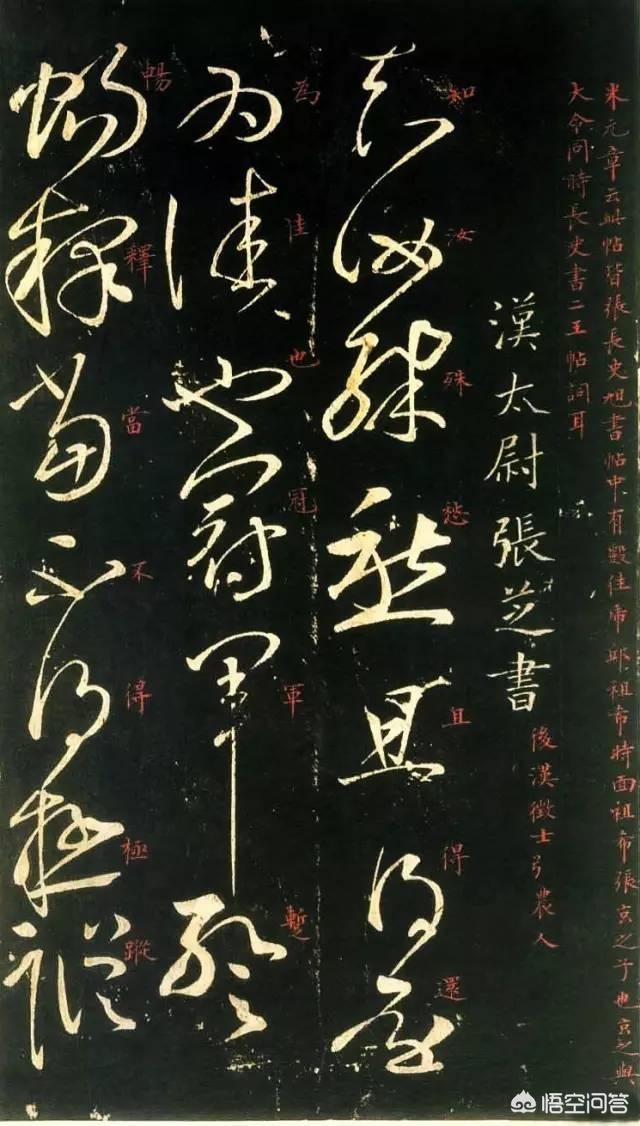 米元章云此帖皆張長史旭書帖中有 祖希時面祖希張 之子也 之與
大令同時長史書二王帖詞耳
漢太尉張芝書
後漢徵士弘農人
知汝殊愁且得還
知汝殊愁且得還
為佳也冠軍暫
為佳也冠軍暫
暢釋當不得極蹤
暢釋當不得極蹤
悟空问答